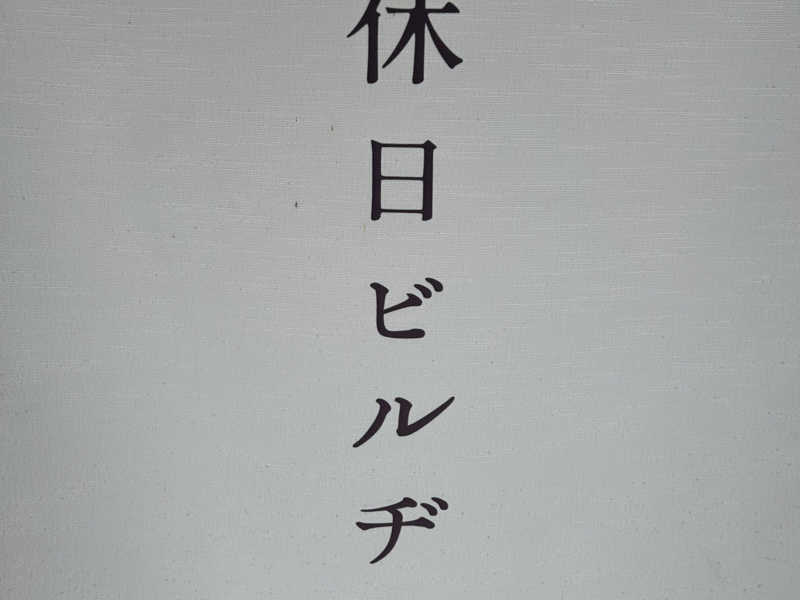 休日ビルヂ